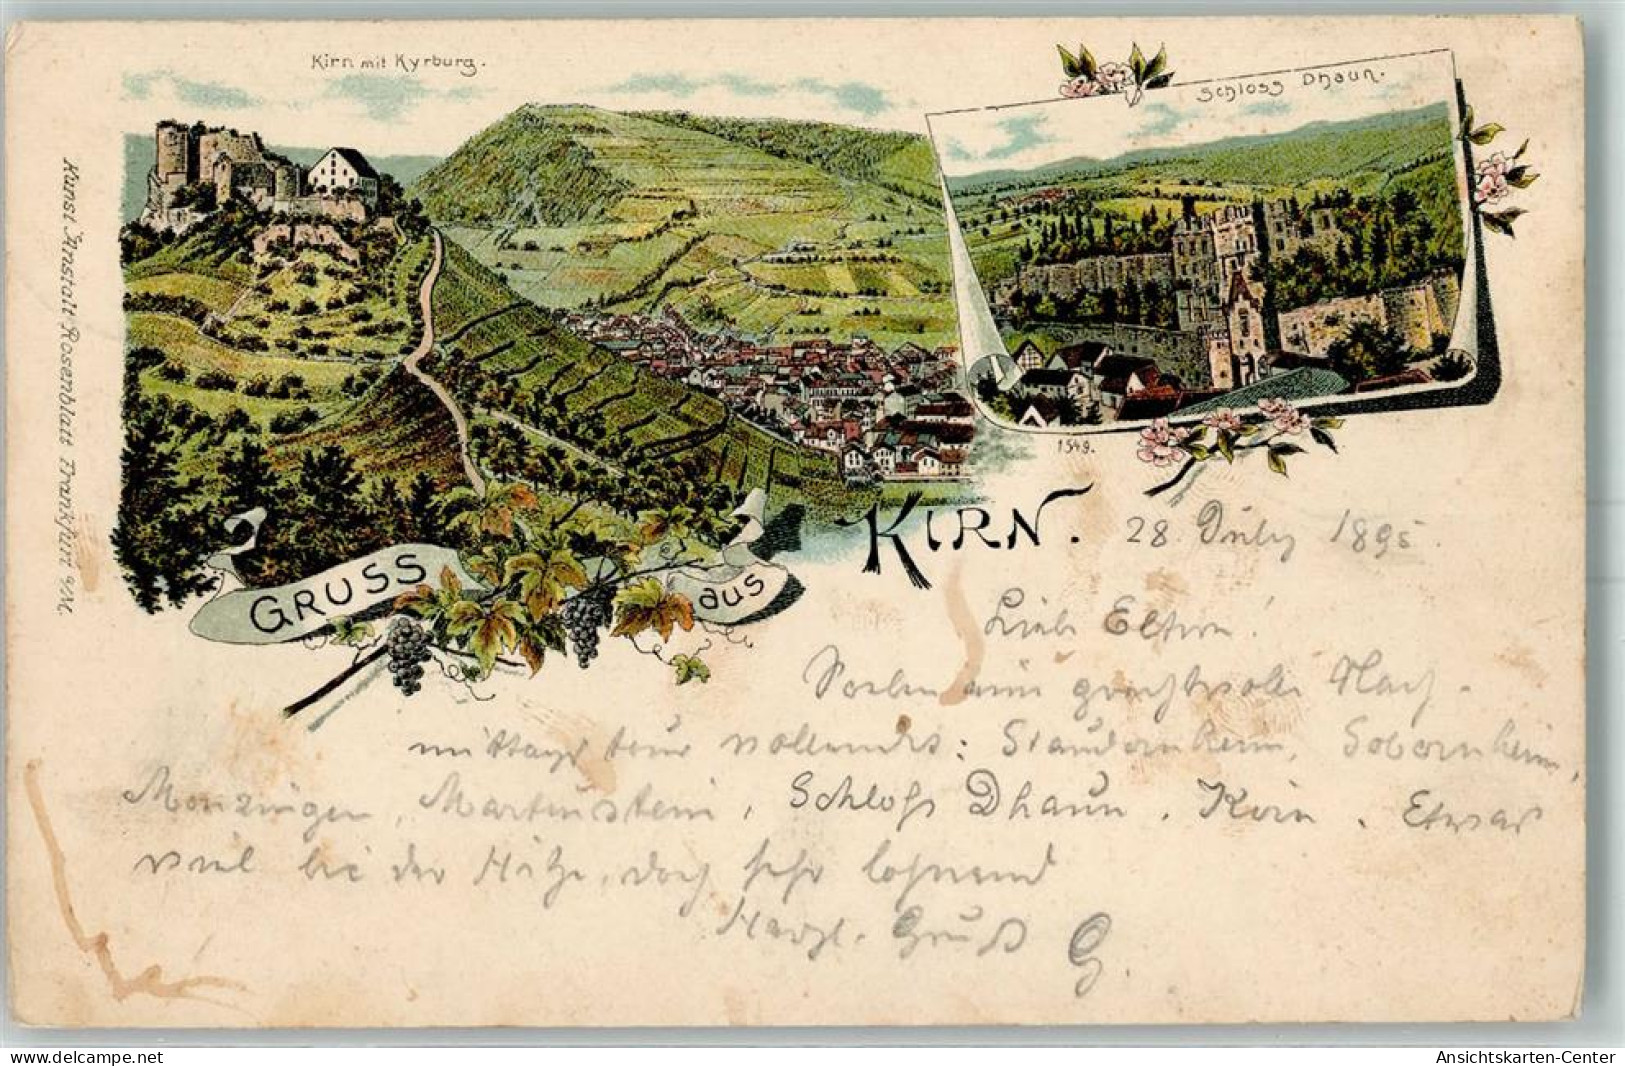 Kirn mit Kyrburg.
Schloss Dhaun.
Kunst Anstalt Rosenblatt Frankfurt a/M.
1549.
GRUSS aus KIRN.
28. July 1895.
Liebe Eltern!
Soeben eine prachtvolle Nach-
mittagstour vollendet: Staudernheim, Sobernheim,
Monzingen, Martinstein, Schloß Dhaun, Kirn. Etwas
viel bei der Hitze, doch sehr lohnend
Herzl. Gruß G.
delcampe.net
themamar
Ansichtskarten-Center